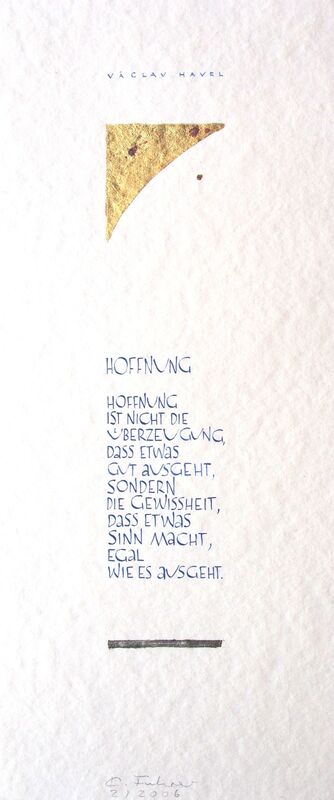 VÁCLAV HAVEL
HOFFNUNG
HOFFNUNG
IST NICHT DIE
ÜBERZEUGUNG,
DASS ETWAS
GUT AUSGEHT,
SONDERN
DIE GEWISSHEIT,
DASS ETWAS
SINN MACHT,
EGAL
WIE ES AUSGEHT.
2/2006